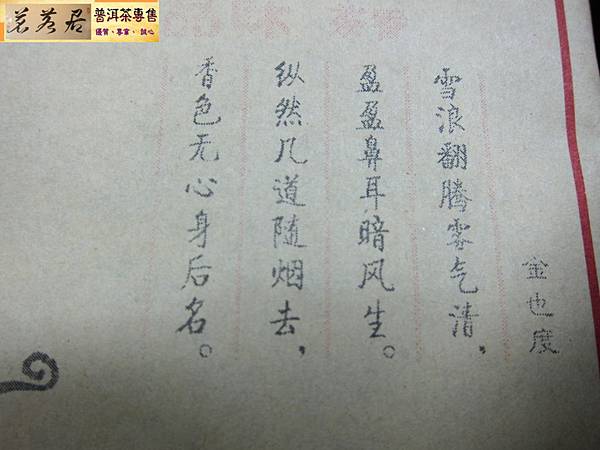 茗茗居
普洱茶專售
優質、專業、誠心
金也度
雪浪翻腾雾气清，
盈盈鼻耳暗风生。
纵然几道随烟去，
香色无心身后名。